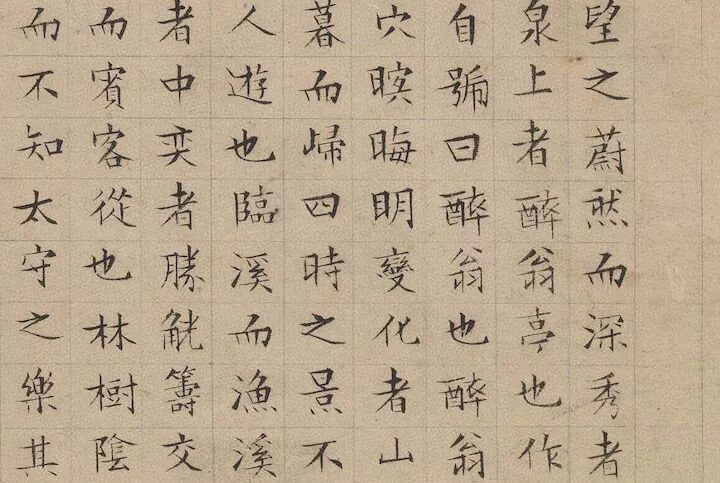 望之蔚然而深秀者
泉上者醉翁亭也作
自號曰醉翁也醉翁
穴暝晦明變化者山
暮而歸四時之景不
人遊也臨溪而漁溪
者中奕者勝觥籌交
而賓客從也林樹陰
而不知太守之樂其